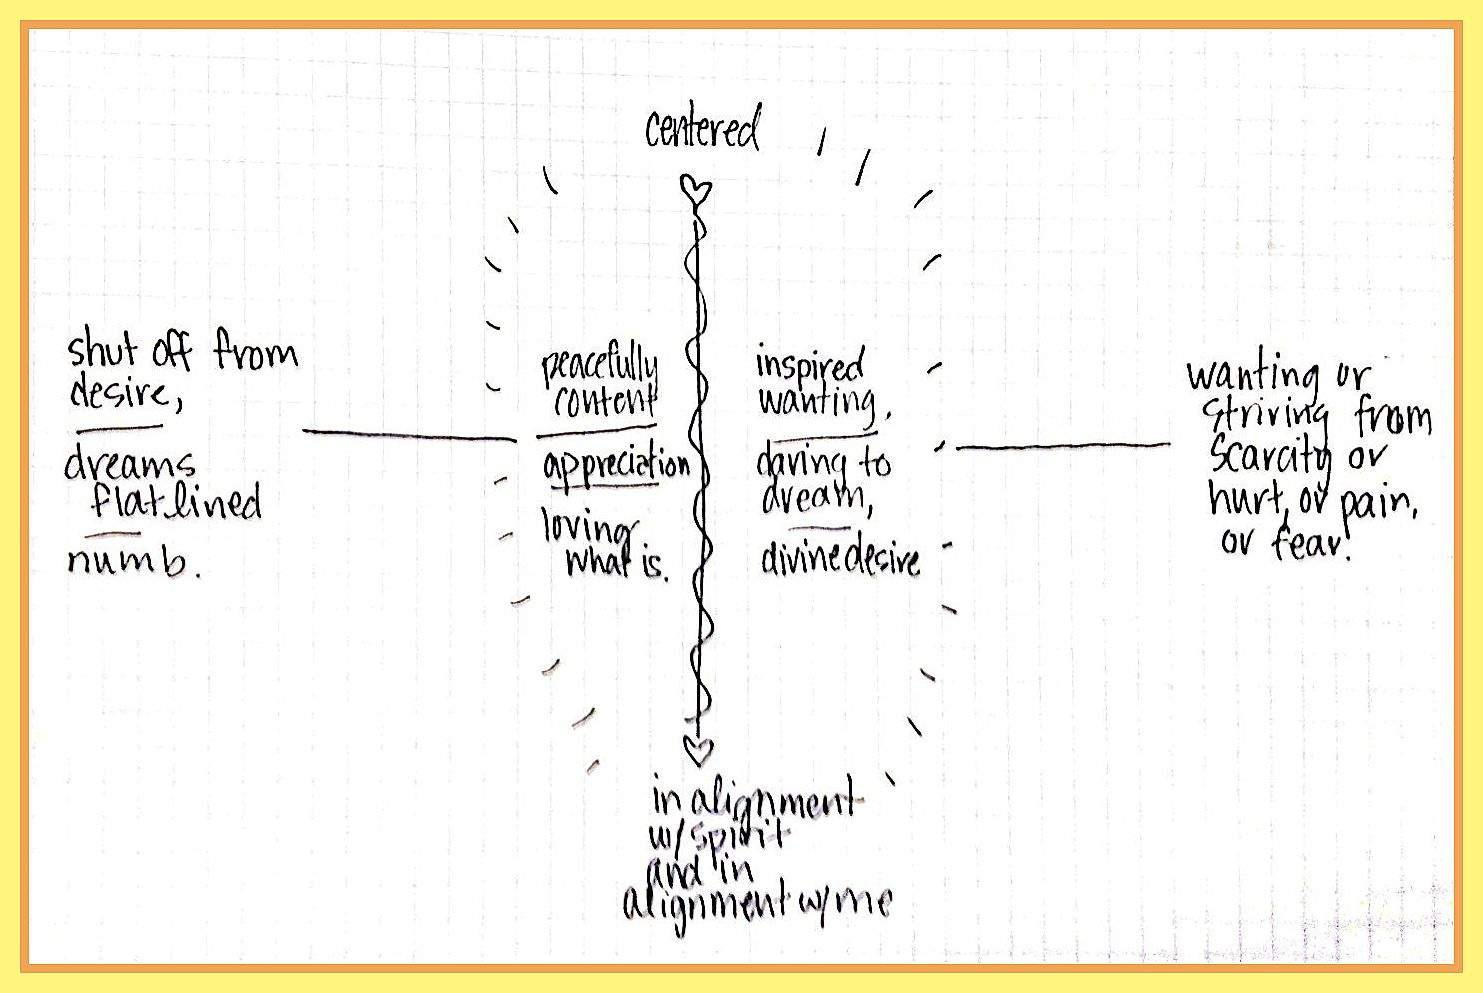 centered
shut off from
desire,
dreams
flatlined
numb.
peacefully
content
appreciation
loving
what is.
inspired
wanting,
daring to
dream,
divine desire
wanting or
striving from
scarcity or
hurt, or pain,
or fear!
in alignment
w/ spirit
and in
alignment w/ me